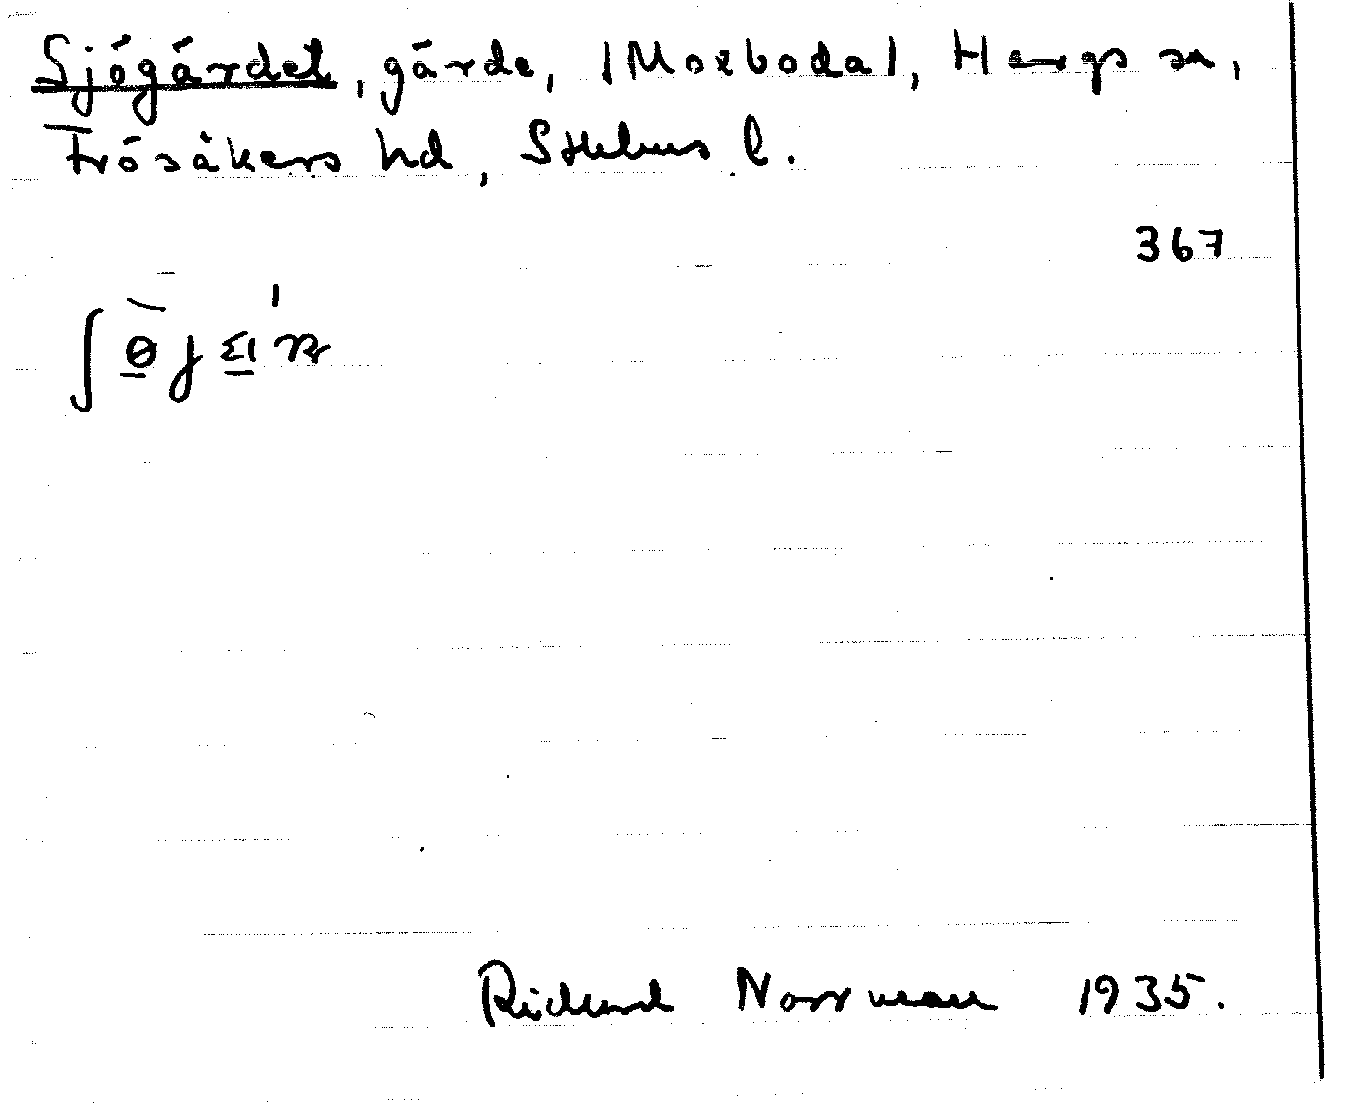 Sjögärdet, gärde, /Morboda/, Hargs sn,
Frösåkers hd, Sthlms l.
367
Richard Norrman 1935.